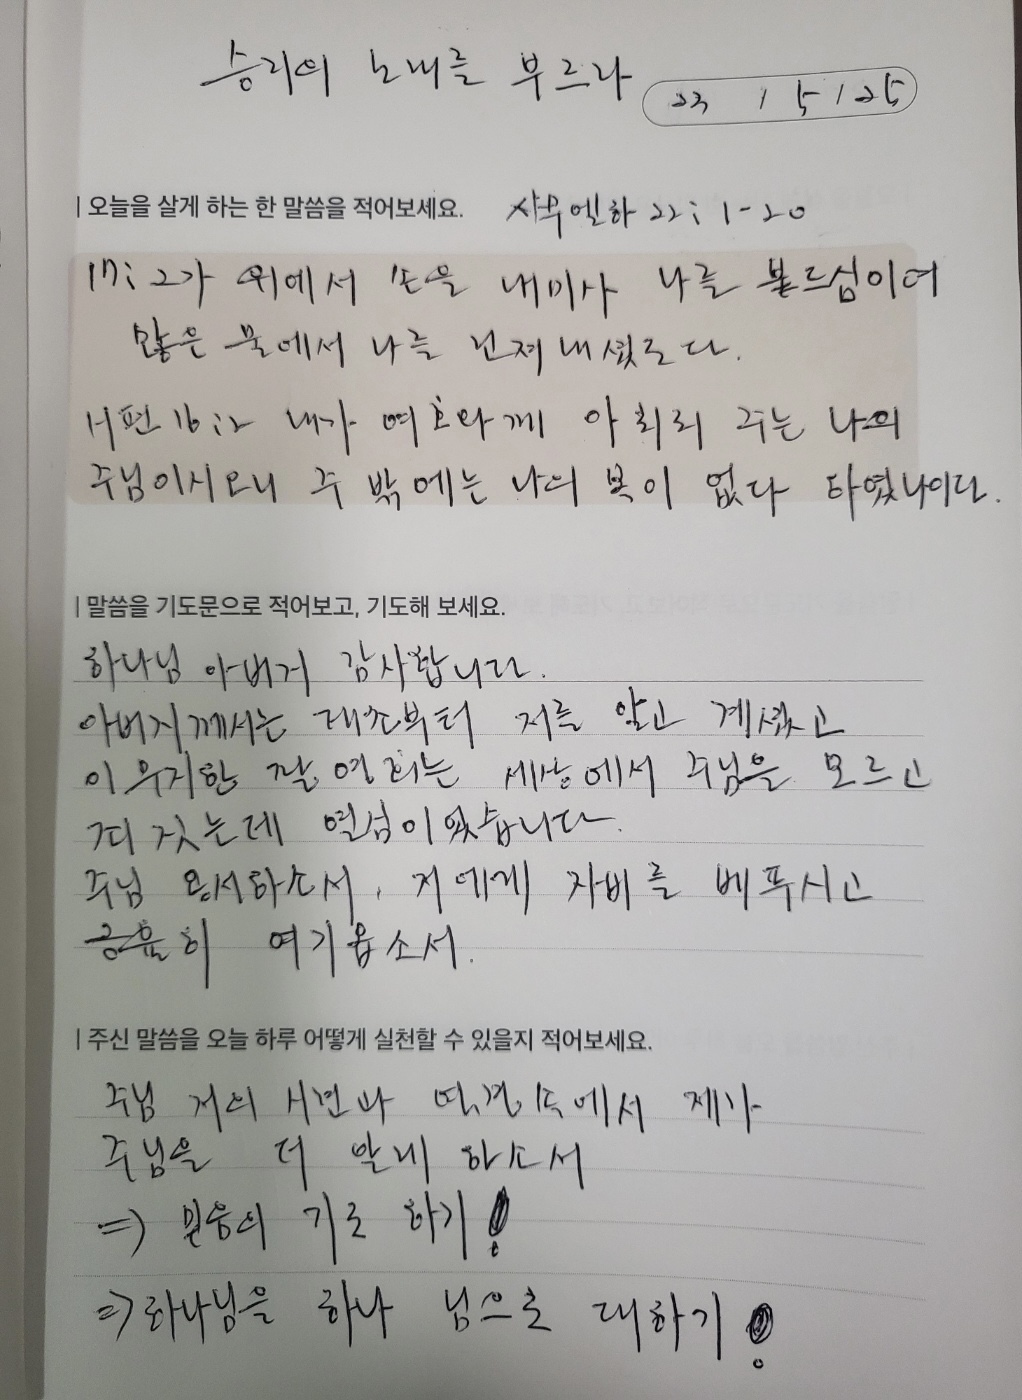 승리의 노래를 부르라
23 / 5 / 25
오늘을 살게 하는 한 말씀을 적어보세요. 사무엘하 22: 1-20
17: 그가 위에서 손을 내미사 나를 붙드심이여
많은 물에서 나를 건져내셨도다.
시편 16:2 내가 여호와께 아뢰되 주는 나의
주님이시오니 주 밖에는 나의 복이 없다 하였나이다.
말씀을 기도문으로 적어보고, 기도해 보세요.
하나님 아버지 감사합니다.
아버지께서는 태초부터 저를 알고 계셨고
이 무지한 딸 는 세상에서 주님을 모르고
죄 짓는데 열심이었습니다.
주님 용서하소서, 저에게 자비를 베푸시고
긍휼히 여기옵소서.
주신 말씀을 오늘 하루 어떻게 실천할 수 있을지 적어보세요.
주님 저의 시련과 역경 속에서 제가
주님을 더 알게 하소서
=> 믿음의 기도 하기!
=> 하나님을 하나님으로 대하기!